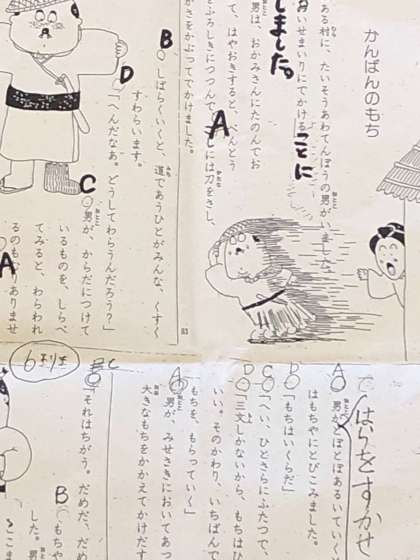 かんばんのもち
ある村に、たいそうあわてんぼうの男がいました。
おいせまいりにでかけることに
しました。
男は、おかみさんにたのんでお
て、はやおきすると、
ふろしきにつつんで
A
には刀をさし、
かさをかぶってでかけました。
83
B
しばらくいくと、道であうひとがみんな、くすく
すわらいます。
D
「へんだなあ。どうしてわらうんだろう?」
C
男が、からだにつけて
いるものを、しらべ
てみると、わらわれ
るのも、
ありませ
A
はらをすかせ
A
男が
とぼとぼあるいていく
はもちやにとびこみました。
D
「もちはいくらだ」
C
「へい、ひとさらにふたつで、
D
「三文しかないから、もちはひ
いい。そのかわり、いちばん
もちを、もらっていく」
A
男が
みせさきにおいてあっ
大きなもちをかかえてかけだす
C
「それはちがう。だめだ、だめ
B
もちや
した。